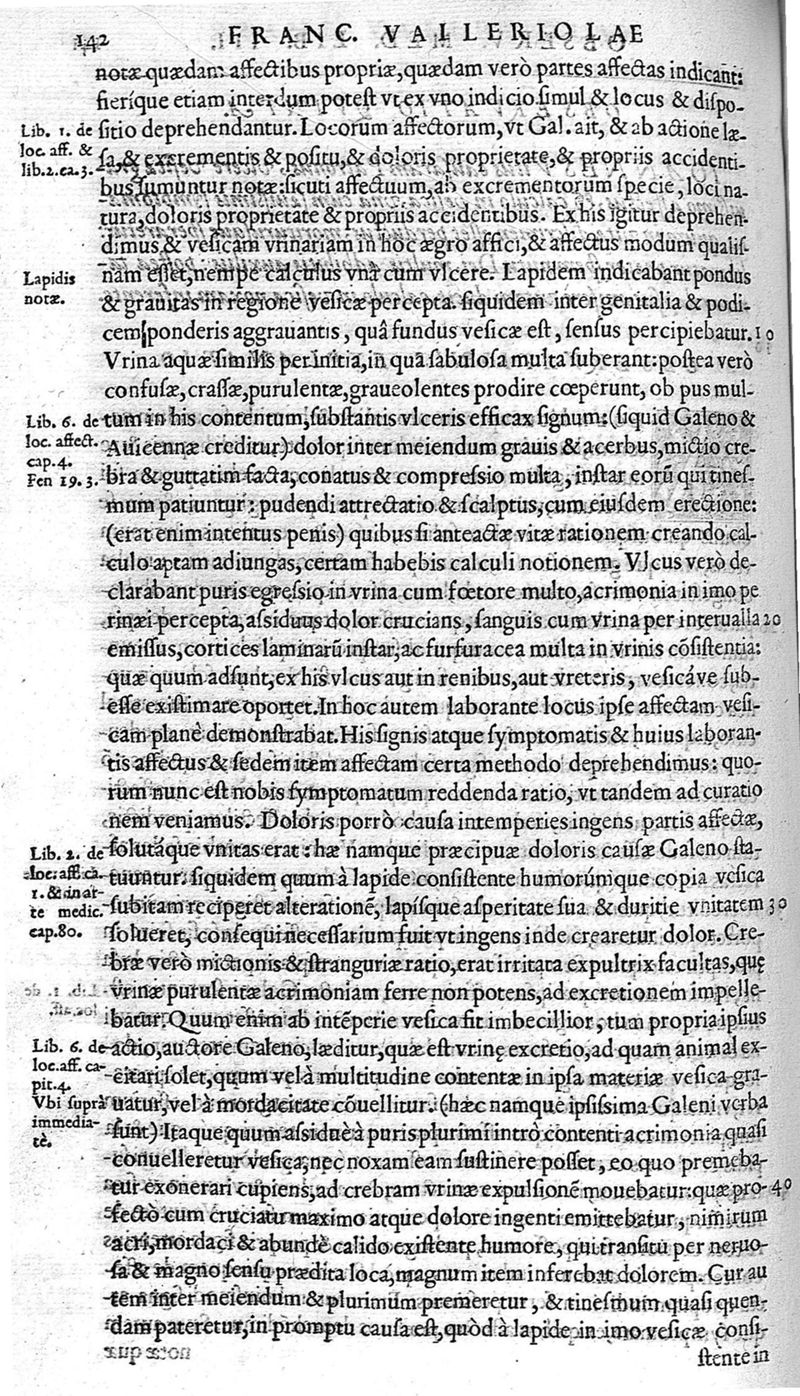 142 FRANC. VALLERIOLAE
notæ quædam affectibus propriæ, quædam verò partes affectas indicant:
fieríque etiam interdum potest vt ex vno indicio simul & locus & dispo-
Lib. 1. de
loc. aff. &
lib. 2. ca. 3.
sitio deprehendantur. Locorum affectorum, vt Gal. ait, & ab actione læ-
sa, & excrementis & positu, & doloris proprietate, & propriis accidenti-
bus sumuntur notæ: sicuti affectuum, ab excrementorum specie, loci na-
tura, doloris proprietate & propriis accidentibus. Ex his igitur deprehen-
dimus, & vesicam vrinariam in hoc ægro affici, & affectus modum qualis-
Lapidis
notæ.
nam esset, nempe calculus vnà cum vlcere. Lapidem indicabant pondus
& grauitas in regione vesicæ percepta. siquidem inter genitalia & podi-
cem ponderis aggrauantis, quâ fundus vesicæ est, sensus percipiebatur. 10
Vrina aquæ similis per initia, in quâ sabulosa multa suberant: postea verò
confusæ, crassæ, purulentæ, graueolentes prodire cœperunt, ob pus mul-
Lib. 6. de
loc. affect.
cap. 4.
Fen 19. 3.
tum in his contentum, substantis vlceris efficax signum: (siquid Galeno &
Auicennæ creditur) dolor inter meiendum grauis & acerbus, mictio cre-
bra & guttatim facta, conatus & compressio multa, instar eorũ qui tines-
mum patiuntur: pudendi attrectatio & scalptus, cum eiusdem erectione:
(erat enim intentus penis) quibus si anteactæ vitæ rationem creando cal-
culo aptam adiungas, certam habebis calculi notionem. Vlcus verò de-
clarabant puris egressio in vrina cum fœtore multo, acrimonia in imo pe
rinæi percepta, assiduus dolor crucians, sanguis cum vrina per interualla 20
emissus, cortices laminarũ instar, ac furfuracea multa in vrinis cõsistentia:
quæ quum adsunt, ex his vlcus aut in renibus, aut vreteris, vesicáve sub-
esse existimare oportet. In hoc autem laborante locus ipse affectam vesi-
cam planè demonstrabat. His signis atque symptomatis & huius laboran-
tis affectus & sedem item affectam certa methodo deprehendimus: quo-
rum nunc est nobis symptomatum reddenda ratio, vt tandem ad curatio
nem veniamus. Doloris porrò causa intemperies ingens partis affectæ,
Lib. 2. de
loc. aff. ca.
1. & in ar-
te medic.
cap. 80.
solutáque vnitas erat: hæ namque præcipuæ doloris causæ Galeno sta-
tuuntur. siquidem quum à lapide consistente humorúmque copia vesica
subitam reciperet alterationẽ, lapísque asperitate sua & duritie vnitatem 30
solueret, consequi necessarium fuit vt ingens inde crearetur dolor. Cre-
bræ verò mictionis & stranguriæ ratio, erat irritata expultrix facultas, quę
vrinæ purulentæ acrimoniam ferre non potens, ad excretionem impelle-
batur. Quum enim ab intẽperie vesica fit imbecillior, tum propria ipsius
Lib. 6. de
loc. aff. ca-
pit. 4.
Vbi suprà
immedia-
tè.
actio, auctore Galeno, læditur, quæ est vrinę excretio, ad quam animal ex-
citari solet, quum vel à multitudine contentæ in ipsa materiæ vesica gra-
uatur, vel à mordacitate cõuellitur. (hæc namque ipsissima Galeni verba
sunt) Itaque quum assiduè à puris plurimi intrò contenti acrimonia quasi
conuelleretur vesica, nec noxam eam sustinere posset, eo quo premeba-
tur exonerari cupiens, ad crebram vrinæ expulsionẽ mouebatur: quæ pro- 40
fectò cum cruciatu maximo atque dolore ingenti emittebatur, nimirum
acri, mordaci & abundè calido existente humore, qui transitu per neruo-
sa & magno sensu prædita loca, magnum item inferebat dolorem. Cur au
tem inter meiendum & plurimum premeretur, & tinesmum quasi quen-
dam pateretur, in promptu causa est, quòd à lapide in imo vesicæ consi-
stente in